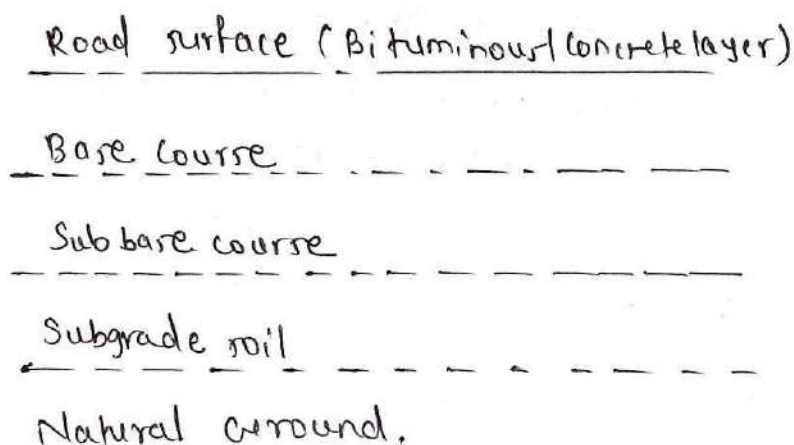 Road surface (Bituminous/Concrete layer)
Base course
Sub base course
Subgrade soil
Natural Ground.